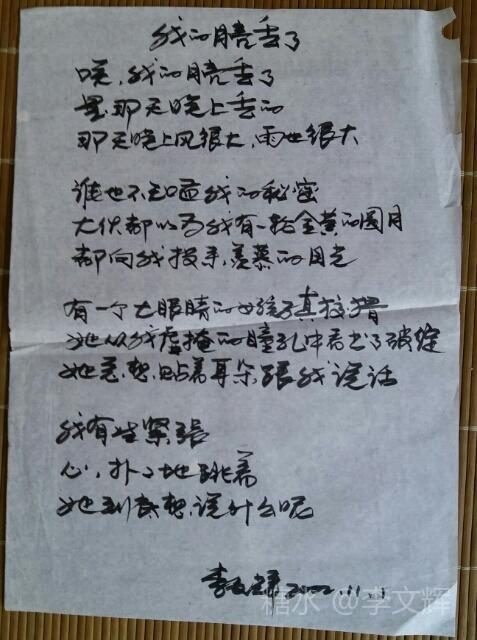 我的月亮丢了
唉,我的月亮丢了
是那天晚上丢的
那天晚上风很大,雨也很大
谁也不知道我的秘密
大伙都以为我有一轮金黄的圆月
都向我投来,羡慕的目光
有一个大眼睛的女孩子真狡猾
她从我虚掩的瞳孔中看出了破绽
她总想贴着耳朵跟我说话
我有些紧張
心,扑〃地跳着
她到底想说什么呢
李文辉 2002.11
糖水 @李文辉